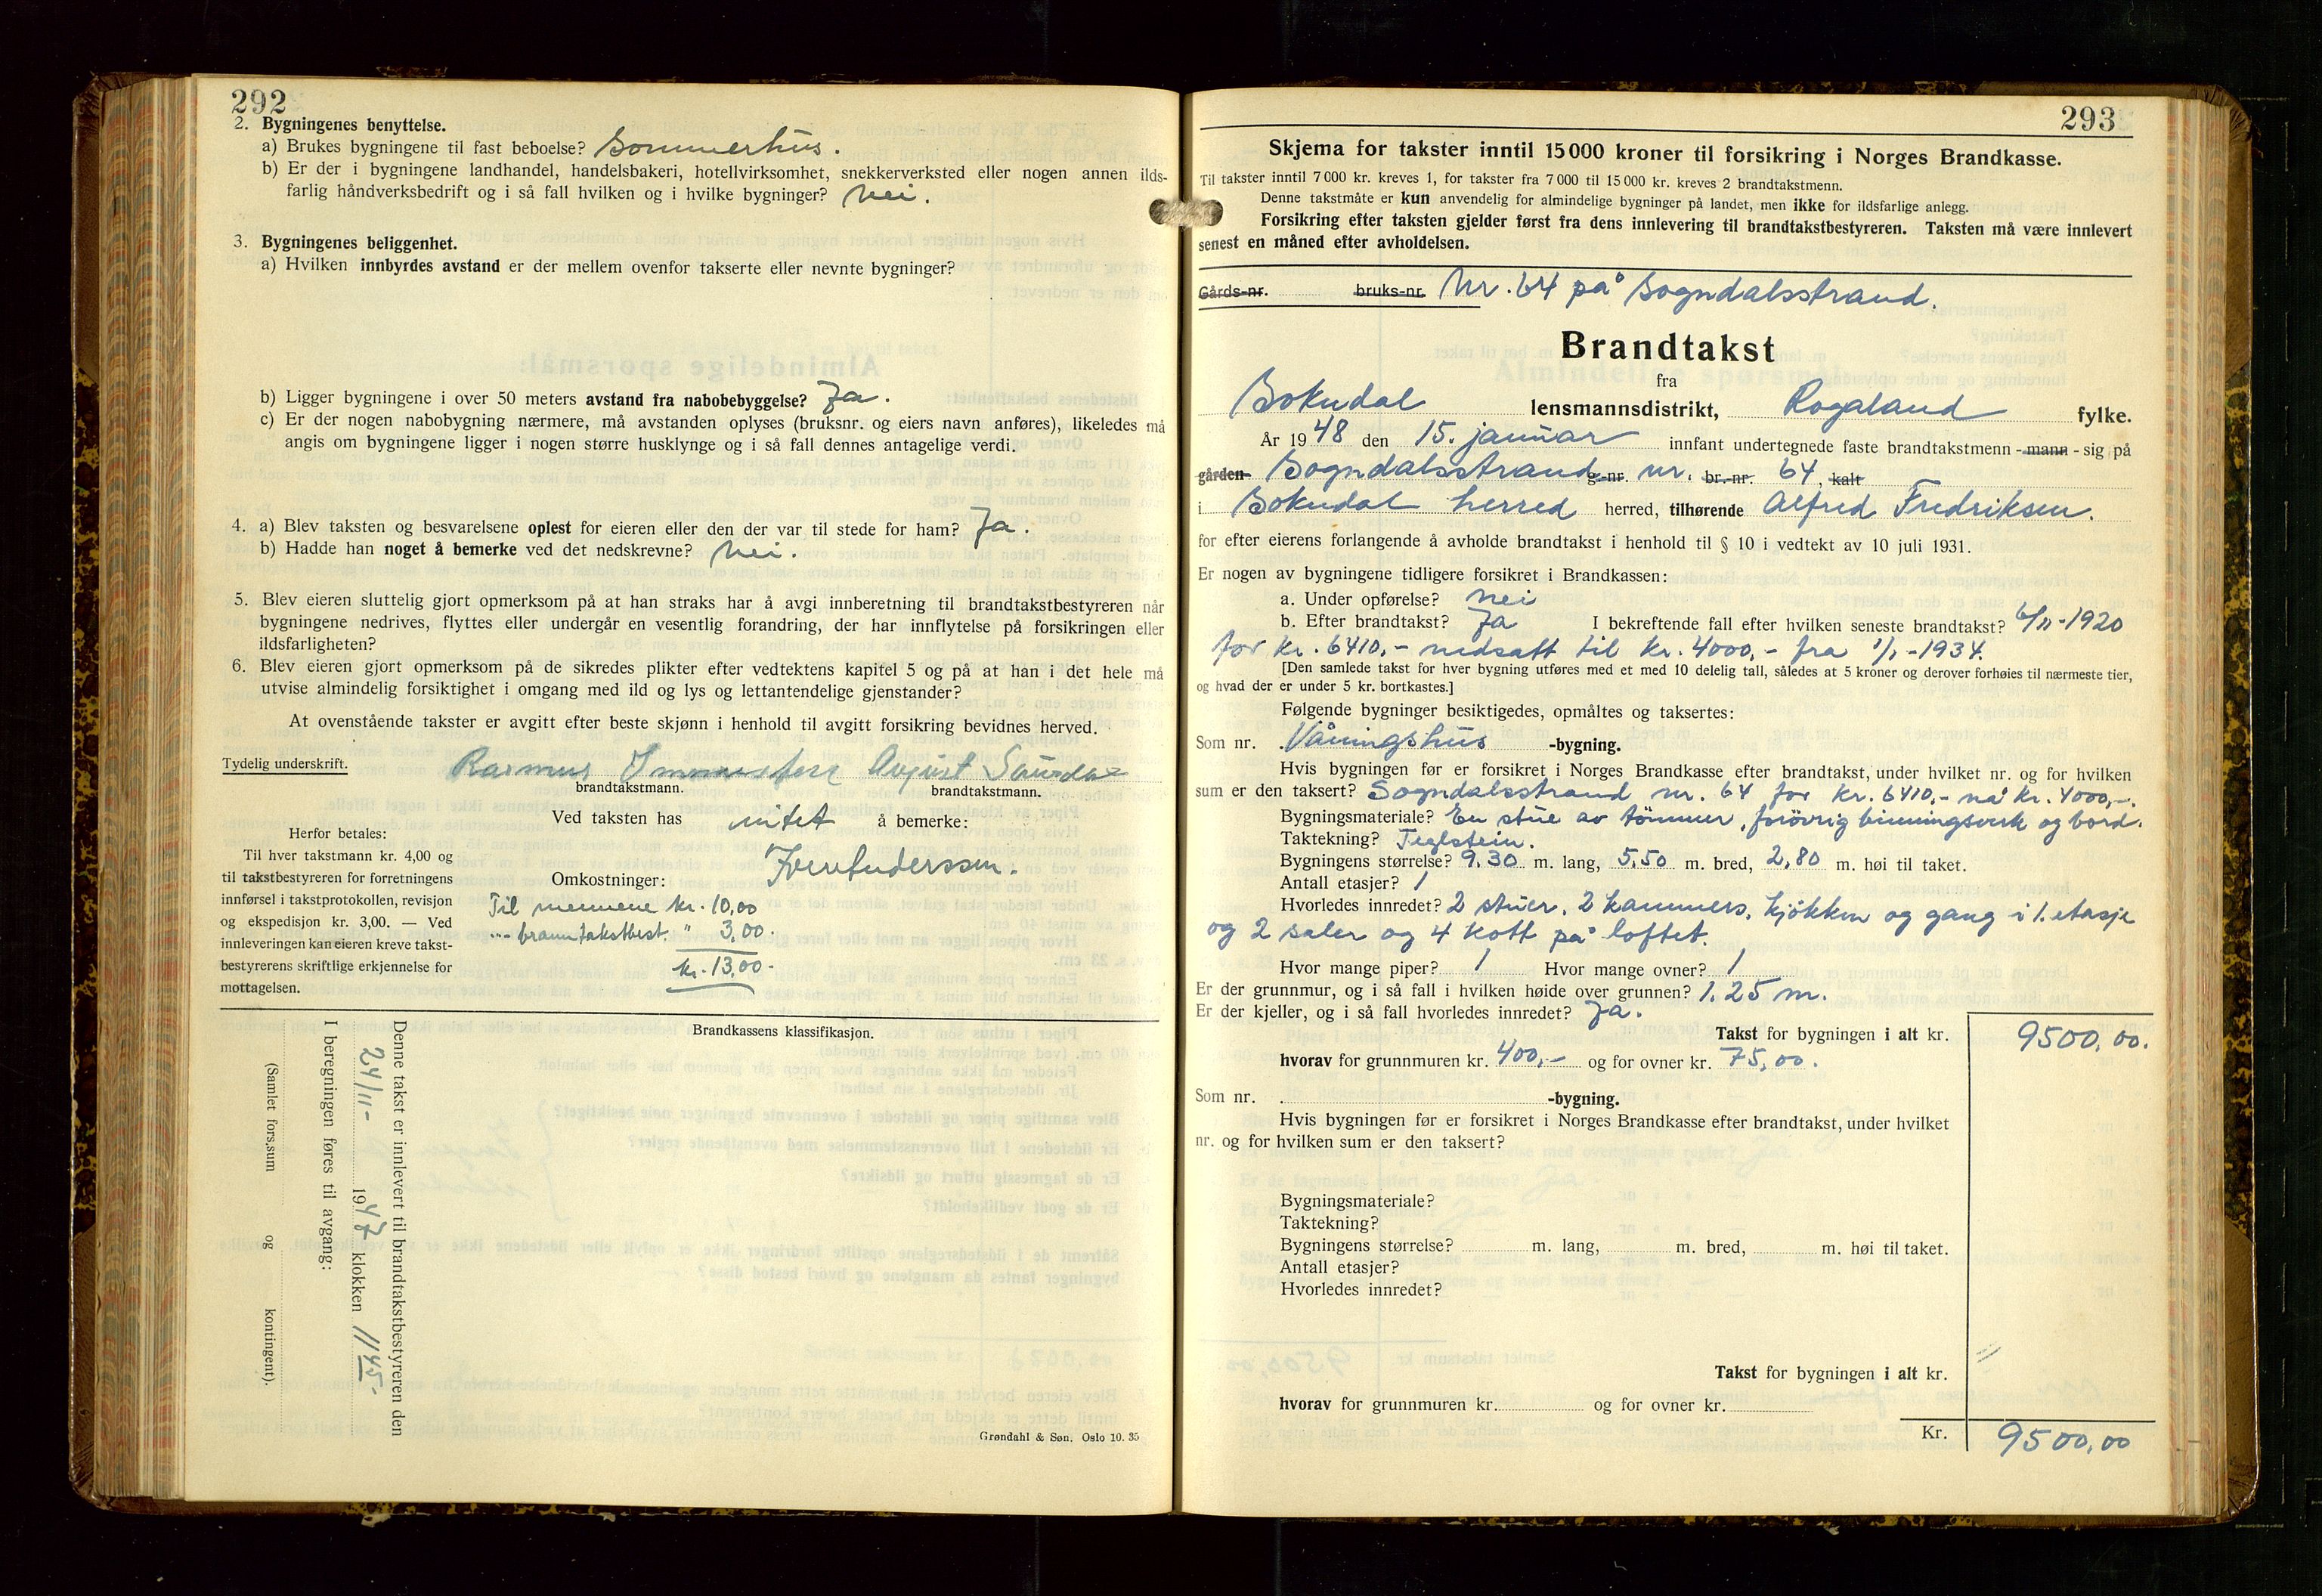 292
2. Bygningenes benyttelse.
a) Brukes bygningene til fast beboelse? Sommerhus.
b) Er der i bygningene landhandel, handelsbakeri, hotellvirksomhet, snekkerverksted eller nogen annen ilds-
farlig håndverksbedrift og i så fall hvilken og i hvilke bygninger? Nei.
3. Bygningenes beliggenhet.
a) Hvilken innbyrdes avstand er der mellem ovenfor takserte eller nevnte bygninger?
b) Ligger bygningene i over 50 meters avstand fra nabobebyggelse? Ja.
c) Er der nogen nabobygning nærmere, må avstanden oplyses (bruksnr. og eiers navn anføres), likeledes må
angis om bygningene ligger i nogen større husklynge og i så fall dennes antagelige verdi.
4. a) Blev taksten og besvarelsene oplest for eieren eller den der var til stede for ham? Ja.
b) Hadde han noget å bemerke ved det nedskrevne? Nei.
5. Blev eieren sluttelig gjort opmerksom på at han straks har å avgi innberetning til brandtakstbestyreren når
bygningene nedrives, flyttes eller undergår en vesentlig forandring, der har innflytelse på forsikringen eller
ildsfarligheten?
6. Blev eieren gjort opmerksom på de sikredes plikter efter vedtektens kapitel 5 og på at han i det hele må
utvise almindelig forsiktighet i omgang med ild og lys og lettantendelige gjenstander?
At ovenstående takster er avgitt efter beste skjønn i henhold til avgitt forsikring bevidnes herved.
Tydelig underskrift. Rasmus August
brandtakstmann. brandtakstmann.
Ved taksten has intet å bemerke:
Herfor betales:
Til hver takstmann kr. 4,00 og
til takstbestyreren for forretningens
innførsel i takstprotokollen, revisjon
og ekspedisjon kr. 3,00. — Ved
innleveringen kan eieren kreve takst-
bestyrerens skriftlige erkjennelse for
mottagelsen.
Omkostninger:
Til mennene kr. 10,00
" branntakstbest. " 3,00.
kr. 13,00.
Brandkassens klassifikasjon.
Denne takst er innlevert til brandtakstbestyreren den
24/11- 1947 klokken 11 45-
I beregningen føres til avgang:
(Samlet fors.sum og kontingent).
Grøndahl & Søn, Oslo 10. 35
293
Skjema for takster inntil 15 000 kroner til forsikring i Norges Brandkasse.
Til takster inntil 7 000 kr. kreves 1, for takster fra 7 000 til 15 000 kr. kreves 2 brandtakstmenn.
Denne takstmåte er kun anvendelig for almindelige bygninger på landet, men ikke for ildsfarlige anlegg.
Forsikring efter taksten gjelder først fra dens innlevering til brandtakstbestyreren. Taksten må være innlevert
senest en måned efter avholdelsen.
Gårds-nr. bruks-nr. Nr. 64 på Sogndalsstrand.
Brandtakst
fra
Sokndal lensmannsdistrikt, Rogaland fylke.
År 1948 den 15. januar innfant undertegnede faste brandtakstmenn - mann - sig på
gården Sogndalsstrand g.-nr. nr. br.-nr. 64, kalt
i Sokndal herred herred, tilhørende Alfred Fredriksen.
for efter eierens forlangende å avholde brandtakst i henhold til § 10 i vedtekt av 10 juli 1931.
Er nogen av bygningene tidligere forsikret i Brandkassen:
a. Under opførelse? Nei
b. Efter brandtakst? Ja I bekreftende fall efter hvilken seneste brandtakst? 6/11-1920
for kr. 6410,- nedsatt til kr. 4000,- fra 1/1-1934.
[Den samlede takst for hver bygning utføres med et med 10 delelig tall, således at 5 kroner og derover forhøies til nærmeste tier,
og hvad der er under 5 kr. bortkastes.]
Følgende bygninger besiktigedes, opmåltes og taksertes:
Som nr. Våningshus -bygning.
Hvis bygningen før er forsikret i Norges Brandkasse efter brandtakst, under hvilket nr. og for hvilken
sum er den taksert? Sogndalsstrand nr. 64 for kr. 6410,- nå kr. 4000,-.
Bygningsmateriale? En stue av tømmer, forøvrig binningsverk og bord.
Taktekning? Teglstein.
Bygningens størrelse? 9,30 m. lang, 5,50 m. bred, 2,80 m. høi til taket.
Antall etasjer? 1
Hvorledes innredet? 2 stuer, 2 kammers, kjøkken og gang i 1. etasje
og 2 saler og 4 kott på loftet.
Hvor mange piper? 1 Hvor mange ovner? 1
Er der grunnmur, og i så fall i hvilken høide over grunnen? 1,25 m.
Er der kjeller, og i så fall hvorledes innredet? Ja.
Takst for bygningen i alt kr. 9500,00.
hvorav for grunnmuren kr. 400,- og for ovner kr. 75,00.
Som nr. -bygning.
Hvis bygningen før er forsikret i Norges Brandkasse efter brandtakst, under hvilket
nr. og for hvilken sum er den taksert?
Bygningsmateriale?
Taktekning?
Bygningens størrelse? m. lang, m. bred, m. høi til taket.
Antall etasjer?
Hvorledes innredet?
Takst for bygningen i alt kr.
hvorav for grunnmuren kr. og for ovner kr.
Kr. 9500,00